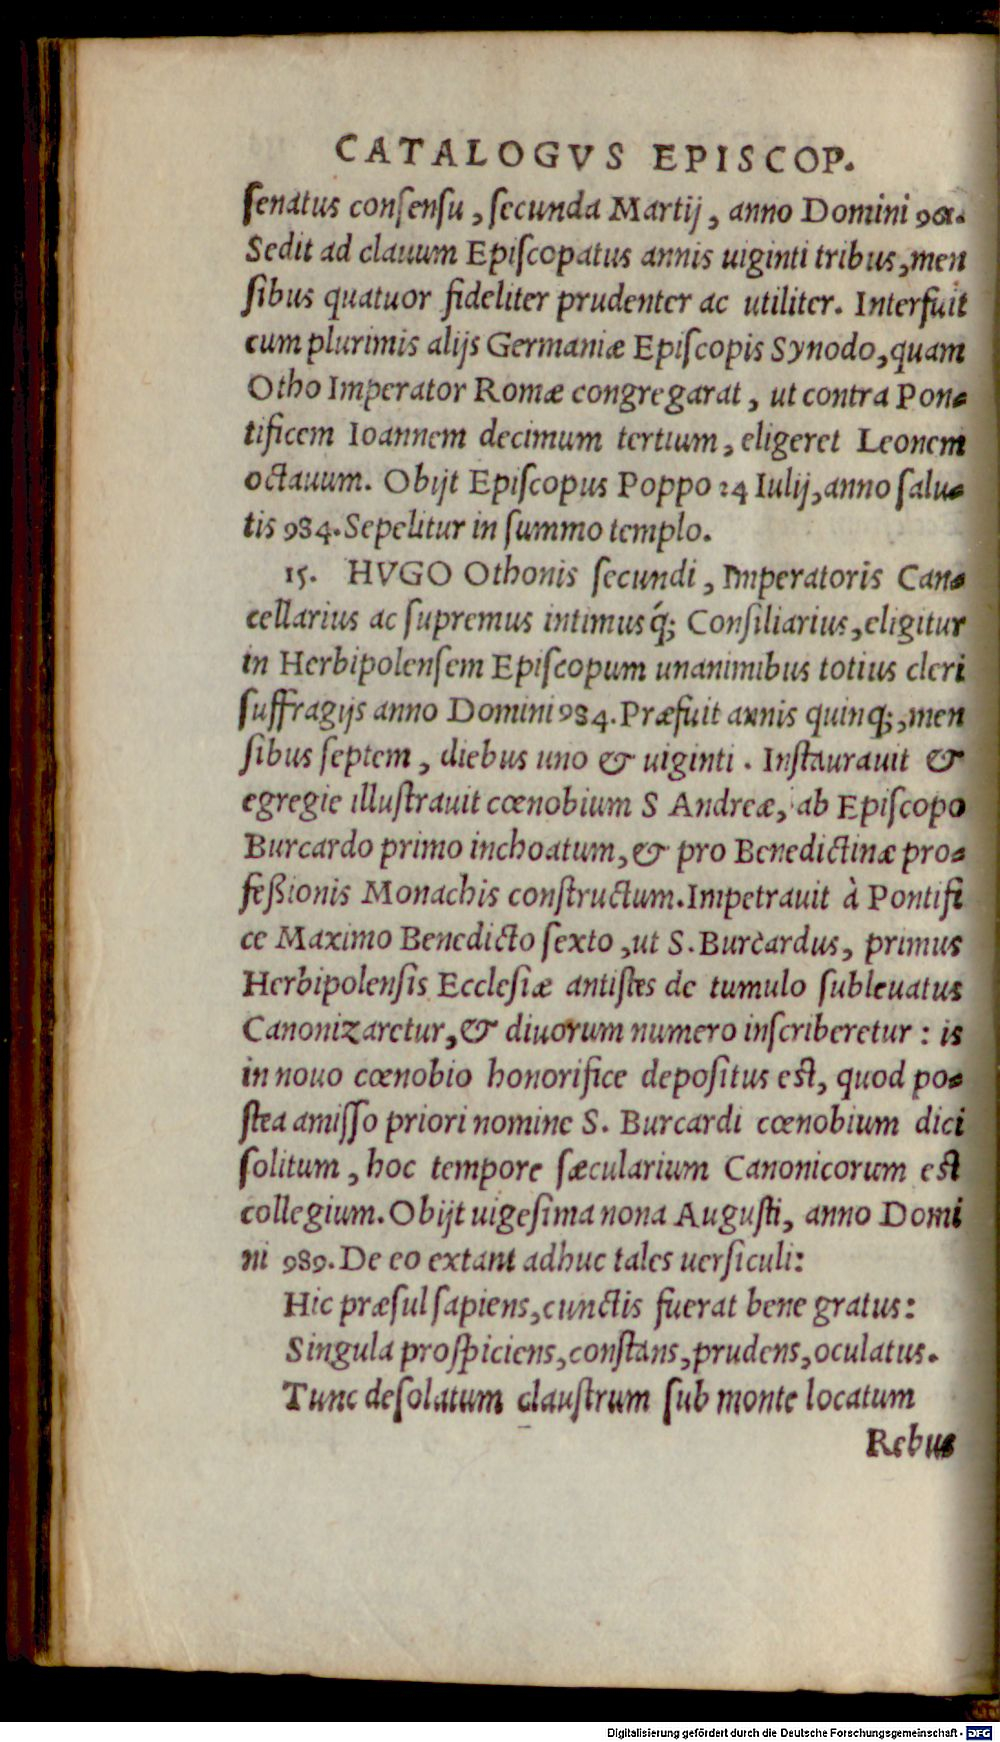 CATALOGVS EPISCOP.
ſenatus conſenſu, ſecunda Martij, anno Domini 961.
Sedit ad clauum Epiſcopatus annis uiginti tribus, men
ſibus quatuor fideliter prudenter ac utiliter. Interfuit
cum plurimis alijs Germaniæ Epiſcopis Synodo, quam
Otho Imperator Romæ congregarat, ut contra Pon-
tificem Ioannem decimum tertium, eligeret Leonem
octauum. Obijt Epiſcopus Poppo 24 Iulij, anno ſalu-
tis 984. Sepelitur in ſummo templo.
15. HVGO Othonis ſecundi, Imperatoris Can-
cellarius ac ſupremus intimusq́; Conſiliarius, eligitur
in Herbipolenſem Epiſcopum unanimibus totius cleri
ſuffragijs anno Domini 984. Præfuit annis quinq;, men
ſibus ſeptem, diebus uno & uiginti. Inſtaurauit &
egregie illuſtrauit cœnobium S Andreæ, ab Epiſcopo
Burcardo primo inchoatum, & pro Benedictinæ pro-
feßionis Monachis conſtructum. Impetrauit à Pontifi
ce Maximo Benedicto ſexto, ut S. Burcardus, primus
Herbipolenſis Eccleſiæ antiſtes de tumulo ſubleuatus
Canonizaretur, & diuorum numero inſcriberetur: is
in nouo cœnobio honorifice depoſitus eſt, quod po-
ſtea amiſſo priori nomine S. Burcardi cœnobium dici
ſolitum, hoc tempore ſæcularium Canonicorum eſt
collegium. Obijt uigeſima nona Auguſti, anno Domi
ni 989. De eo extant adhuc tales uerſiculi:
Hic præſul ſapiens, cunctis fuerat bene gratus:
Singula proſpiciens, conſtans, prudens, oculatus.
Tunc deſolatum clauſtrum ſub monte locatum
Rebus
Digitalisierung gefördert durch die Deutsche Forschungsgemeinschaft - DFG